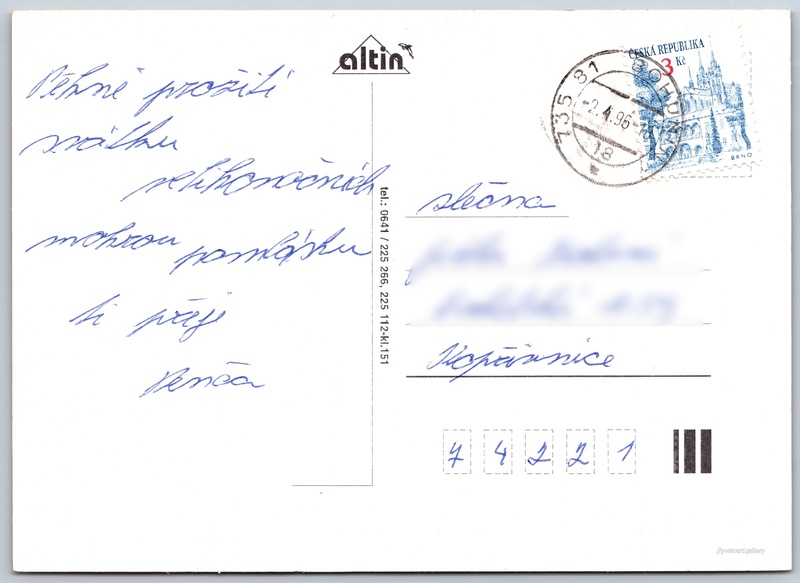 altin
ČESKÁ REPUBLIKA
3 Kč
BRNO
735 81 BOHUMÍN
-2.4.96-
18
Pěkné prožití
svátku
velikonočních
mokrou pomlásku
ti přeje
Venča
tel.: 0641 / 225 266, 225 112-kl.151
slečna
Kopřivnice
7 4 2 2 1
//postcart.gallery